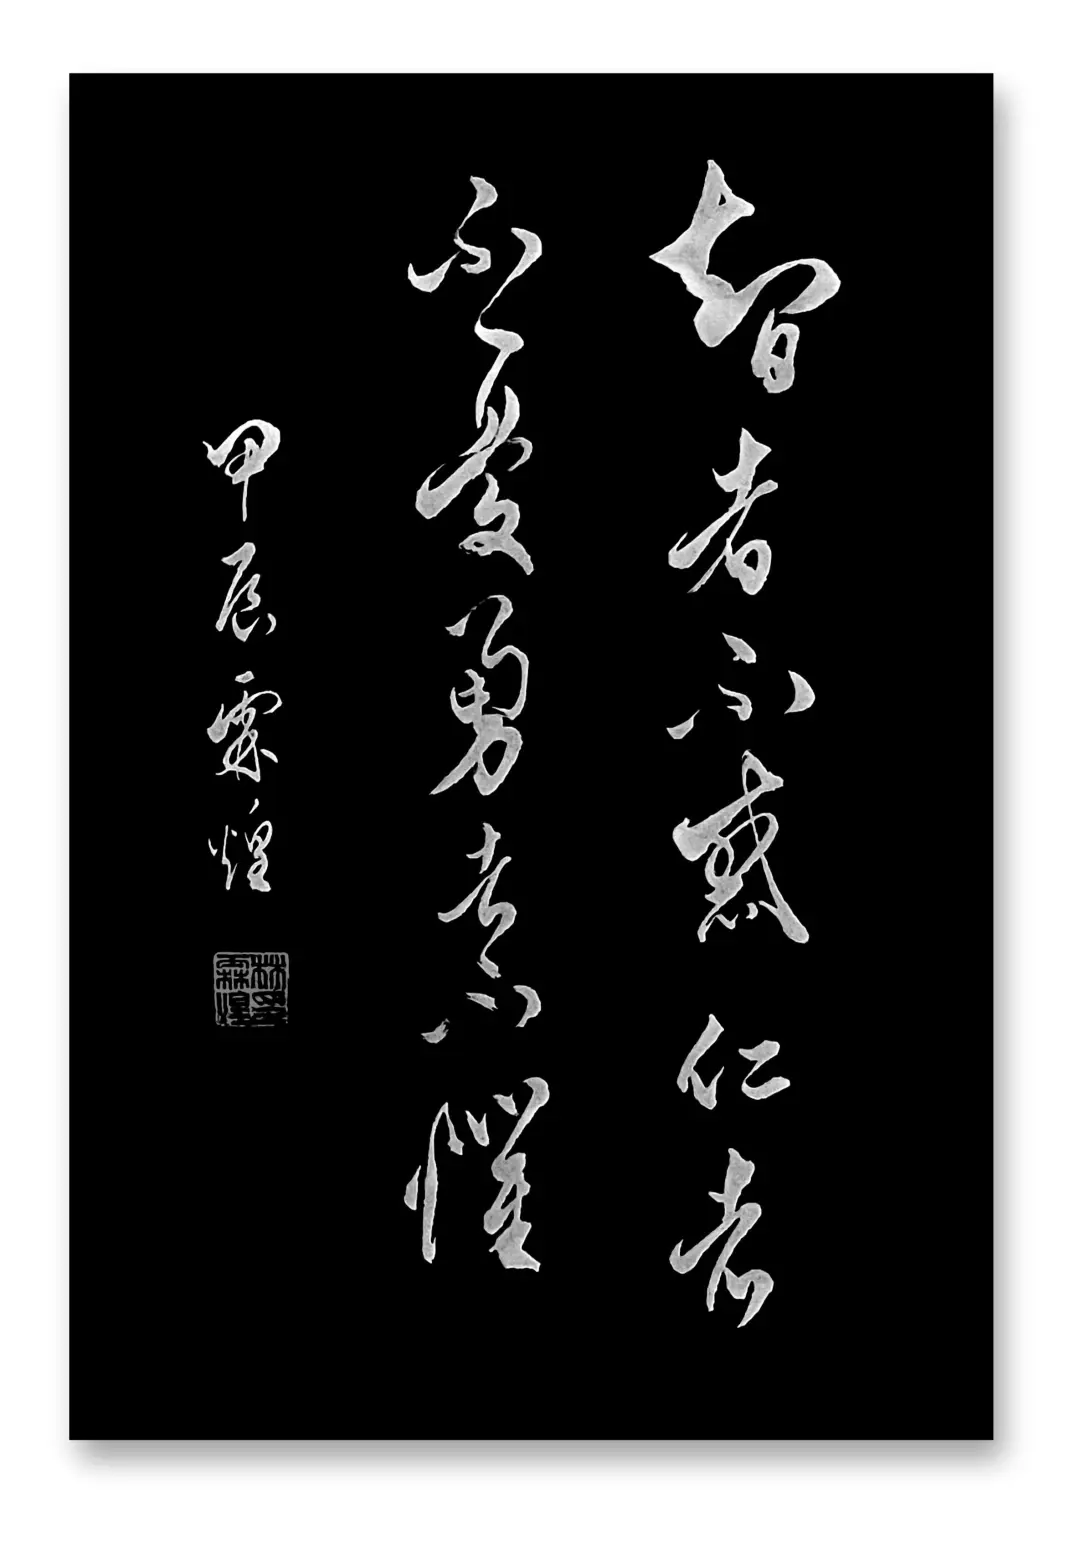 智者不惑仁者
不憂勇者不懼
甲辰霖煌